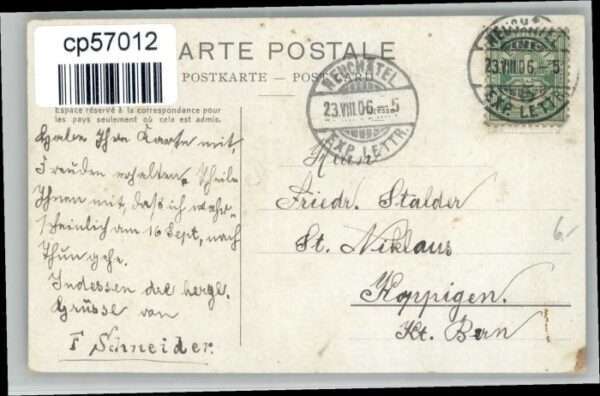 cp57012
CARTE POSTALE
POSTKARTE — POST CARD
Espace réservé à la correspondance pour
les pays seulement où cela est admis.
Adresse
NEUCHÂTEL
23.VIII.06.–5
EXP. LETTR.
NEUCHÂTEL
23.VIII.06.–5
EXP. LETTR.
Habe Ihre Karte mit
Freuden erhalten. Theile
Ihnen mit, daß ich wahr-
scheinlich am 16 Sept. nach
Thun gehe.
Indessen die herzl.
Grüsse von
F Schneider.
Herrn
Friedr. Stalder
St. Niklaus
Koppigen.
Kt. Bern
6.-